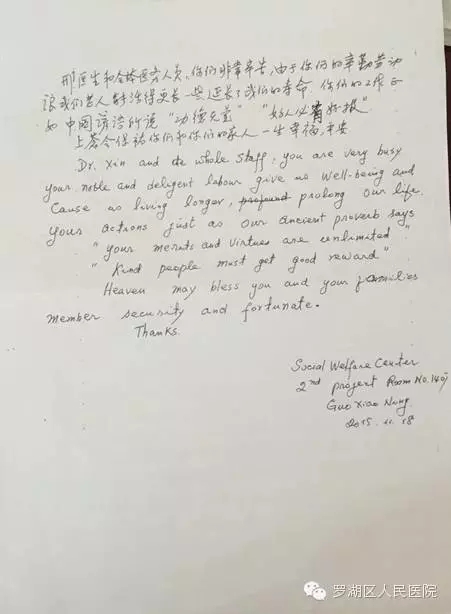 邢医生和全体医务人员,你们非常辛苦,由于你们的辛勤劳动
使我们老人都活得更长一些,延长了我们的寿命,你们的工作正
如中国谚语所说“功德无量”“好人必有好报”
上苍会保祐你们和你们的家人一生幸福,平安
Dr. Xin and the whole staff, you are very busy
your noble and deligent labour give us well-being and
Cause us living longer, prolong our life.
your actions just as our ancient proverb says
"your merits and virtues are unlimited"
"Kind people must get good reward"
Heaven may bless you and your families
member security and fortunate.
Thanks.
Social Welfare Center
2nd project Room No.
Guo Xiao Ning
2015. 11. 18
罗湖区人民医院